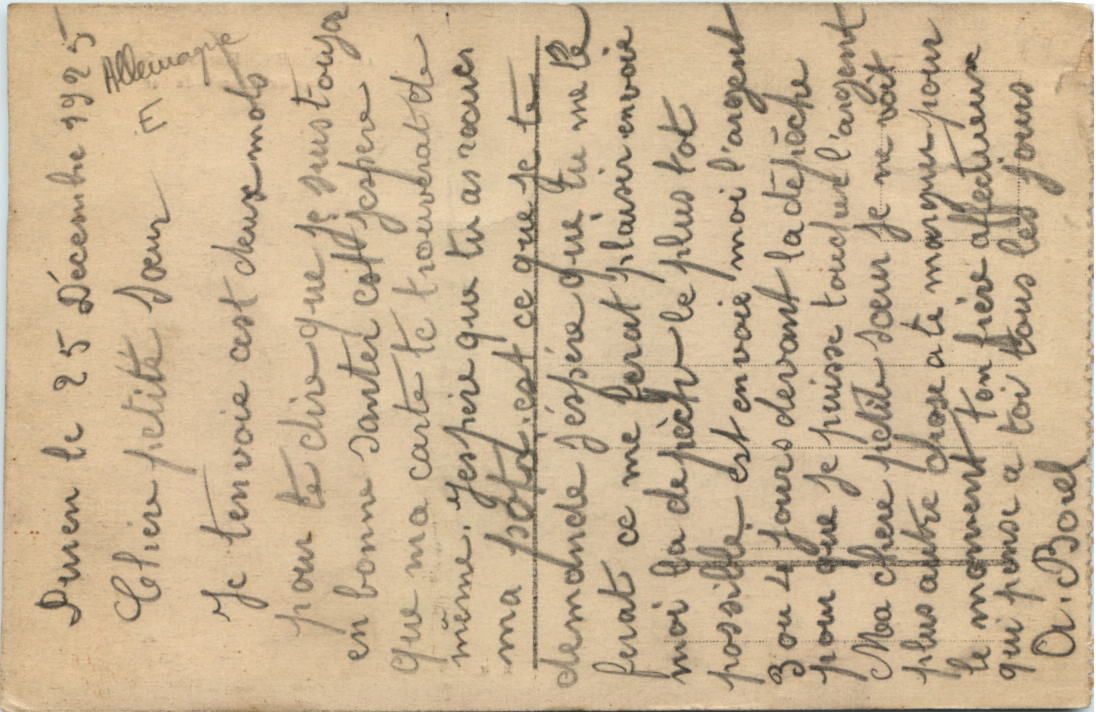 Duren le 25 Décembre 1925
Allemagne
Chère petite Sœur
Je tenvoie cest deux mots
pour te dire que je suis toujor
en bonne santer est jespere
que ma carte te trouverat de
même. Jespere que tu as recues
ma est ce que je te
demande jéspére que tu me le
ferat ce me ferat plaisir envoie
moi la depèche le plus tot
possible est envoie moi l'argent
3 ou 4 jours devant la dépêche
pour que je puisse toucher l'argent
Ma chere petite sœur je ne voit
plus autre chose a te marquer pour
le moment ton frère affectueux
qui pense a toi tous les jours
A. Borel